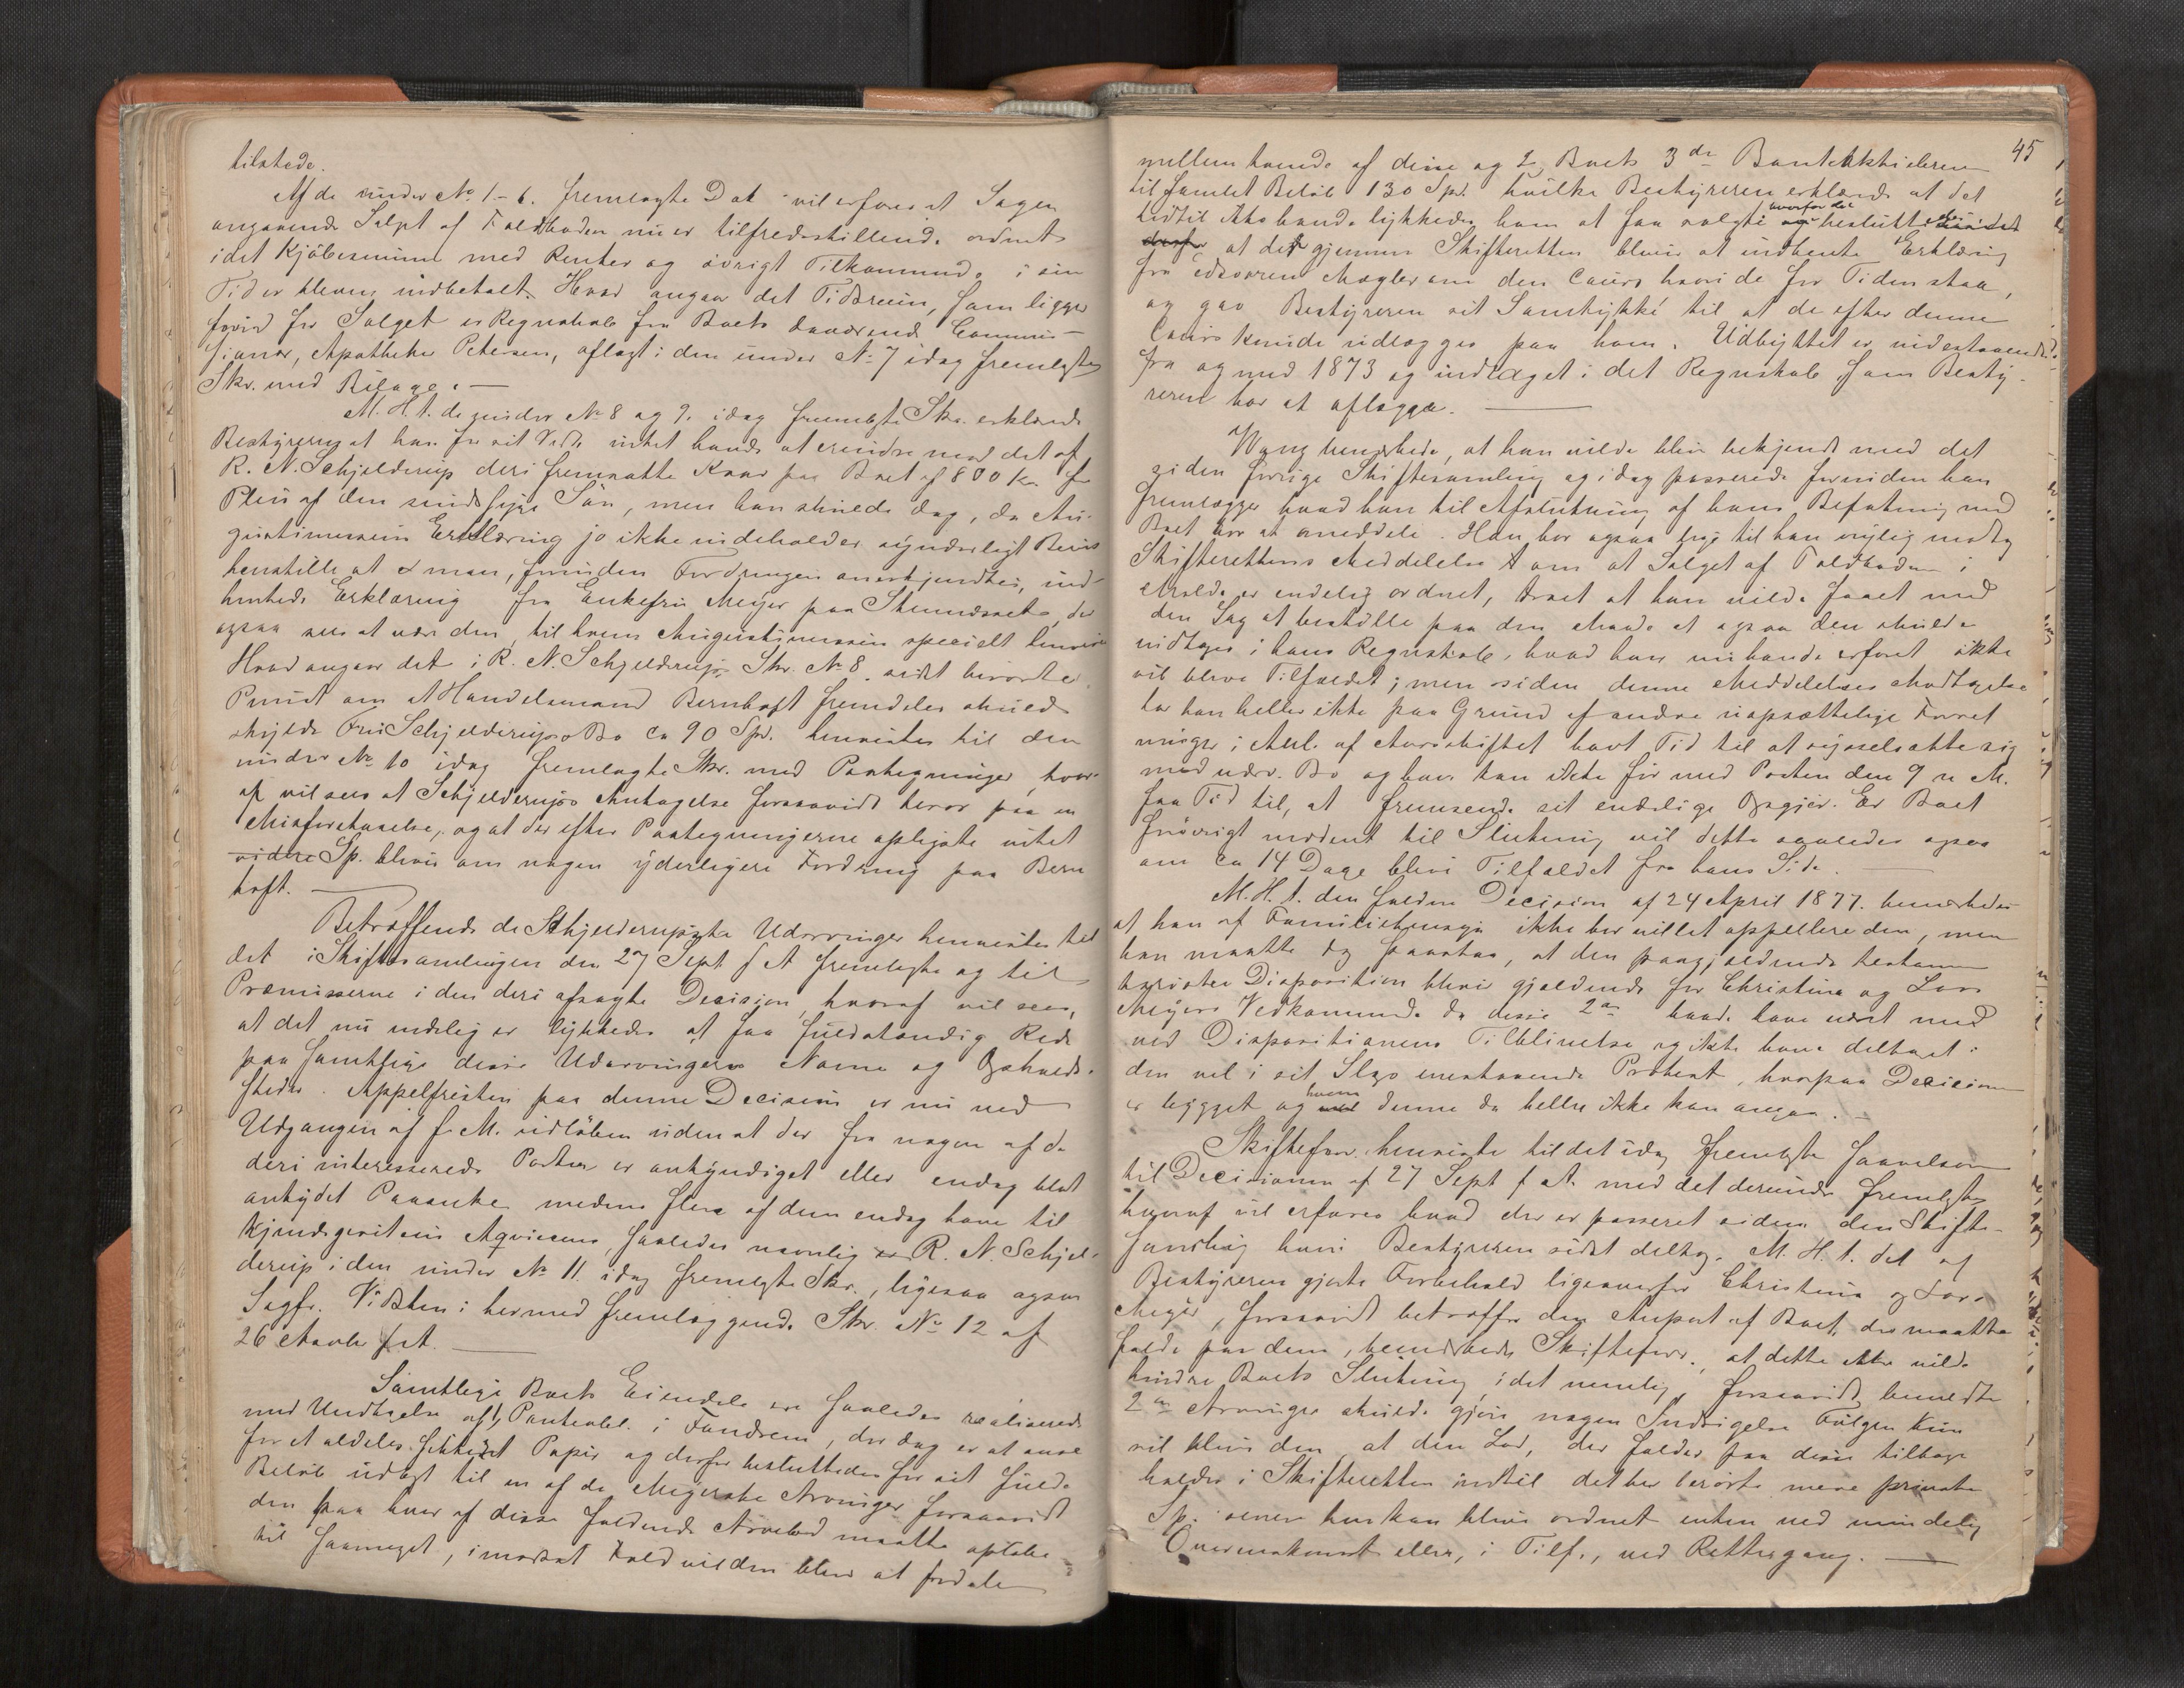 tilstede.
Af de under No 1-6. fremlagte Dok. vil erfares at Sagen
angaaende Salget af Toldboden nu er tilfredsstillende ordnet
idet Kjøbesummen med Renter og øvrigt Tilkommende i sin
Tid er bleven indbetalt. Hvad angaar det Tidsrum, som ligger
forud for Salget er Regnskab fra Boets daværende Commis-
sionær, Apotheker Petersen, aflagt i den under No 7 idag fremlagte
Skr. med Bilage. —
M. H. t. de under No 8 og 9. idag fremlagte Skr. erklærede
Bestyreren at han for sit Vedk. intet havde at erindre mod det af
R. N. Schjelderup deri fremsatte Krav paa Boet af 800 Kr. for
Pleie af den sindssyge Søn, men han skulde dog, da Au-
gustinussens Erklæring jo ikke indeholder synderligt Bevis
henstille at man, forinden Fordringen anerkjendtes, ind-
hentede Erklæring fra Enkefru Meyer paa Stennesset, der
ogsaa sees at være den, til hvem Augustinussen specielt henviser
Hvad angaar det i R. N. Schjelderups Skr. No 8. sidst berørte
Punct om at Handelsmand Bernhoft fremdeles skulde
skylde Fru Schjelderups Bo ca 90 Spd. henvistes til den
under No 10 idag fremlagte Skr. med Paategninger, hvor-
af vil sees at Schjelderups Antagelse forsaavidt beror paa en
Misforstaaelse, og at der efter Paategningerne opligste intet
videre Sp. bliver om nogen yderligere Fordring paa Bern
hoft. —
Betræffende de Schjelderupske Udarvinger henvistes til
det i Skiftesamlingen den 27 Sept f A fremlagte og til
Præmisserne i den deri afsagte Decision, hvoraf vil sees,
at det nu endelig er lykkedes at faa fuldstændig Rede
paa samtlige disse Udarvingers Navne og Opholds-
steder. Appelfristen paa denne Decision er nu ved
Udgangen af f. M. udløben uden at der fra nogen af de
deri interesserede Parter er ankyndiget eller endog blot
antydet Paaanke medens flere af dem endog have til
kjendegivet sin Aqviescens, saaledes navnlig R. N. Schjel-
derup i den under No 11. idag fremlagte Skr., ligesaa ogsaa
Sagf. Vibsten i hermed fremlæggende Skr. No 12 af
26 Marts f A. —
Samtlige Boets Eiendele ere saaledes realiserede
med Undtagelse af 1 Panteobl. i Tandrem, der dog er at anse
for et aldeles sikkert Papir og derfor besluttedes for sit fulde
Beløb udlagt til en af de Meyerske Arvinger forsaavidt
den paa hver af disse faldende Arvelod maatte opløbe
til saameget, i modsat Fald vil den blive at fordele
45
mellem hænde af disse og 2. Boets 3de Bankaktier
til samlet Beløb 130 Spd. hvilke Bestyreren erklærede at det
hidtil ikke havde lykkedes ham at faa solgte hvorfor det besluttedes
at der gjennem Skifteretten bliver at indhente Erklæring
fra edsvoren Mægler om den Cours hvori de for Tiden staa,
og gav Bestyreren sit Samtykke til at de efter denne
Cours kunde udlægges paa ham. Udbyttet er indestaaende
fra og med 1873 og indtaget i det Regnskab som Besty-
reren har at aflægge. —
Wang bemærkede, at han vilde blive bekjendt med det
i den forrige Skiftesamling og idag passerede forinden han
fremlægger hvad han til Afslutning af hans Befatning med
Boet har at meddele. Han har ogsaa lige til han nylig modtog
Skifterettens Meddelelse om at Salget af Toldboden i
Molde er endelig ordnet, troet at han vilde faaet med
den Sag at bestille paa den Maade at ogsaa den skulde
indtages i hans Regnskab, hvad han nu havde erfaret ikke
vil blive Tilfældet; men siden denne Meddelelses Modtagelse
har han heller ikke paa Grund af andre uopsættelige Forret
ninger i Anl. af Aarsskiftet havt Tid til at sysselsætte sig
med nærv. Bo og han kan ikke før med Posten den 9 n M.
faa Tid til, at fremsende sit endelige Opgjør. Er Boet
forøvrigt modent til Slutning vil dette saaledes ogsaa
om ca 14 Dage blive Tilfældet fra hans Side. —
M. H. t. den faldne Decision af 24 April 1877. bemærkedes
at han af Familiehensyn ikke har villet appellere den, men
han maatte dog paastaa, at den paagjældende testamen
tariske Disposition bliver gjældende for Christine og Lars
Meyers Vedkommende da disse 2de havde have været med
ved Dispositionens Tilblivelse og ikke have deltaget i
den vel i sit Slags enestaaende Protest, hvorpaa Decisionen
er bygget og hvem denne da heller ikke kan angaa. —
Skifteforv. henviste til det idag fremlagte saavelsom
til Decisionen af 27 Sept f A. med det derunder fremlagte
hvoraf vil erfares hvad der er passeret siden den Skifte-
samling hvori Bestyreren sidst deltog. M. H. t. det af
Bestyreren gjorte Forbehold ligeoverfor Christine og Lars
Meyer, forsaavidt betræffer den Anpart af Boet, der maatte
falde paa dem, bemærkede Skifteforv., at dette ikke vilde
hindre Boets Slutning idet nemlig, forsaavidt bemeldte
2de Arvinger skulde gjøre nogen Indsigelse Følgen kun
vil blive den at den Lod, der falder paa disse tilbage
holdes i Skifteretten indtil det her berørte mere private
Sp. senere hen kan blive ordnet enten ved mindelig
Overenskomst eller, i Tilf., ved Rettergang. —